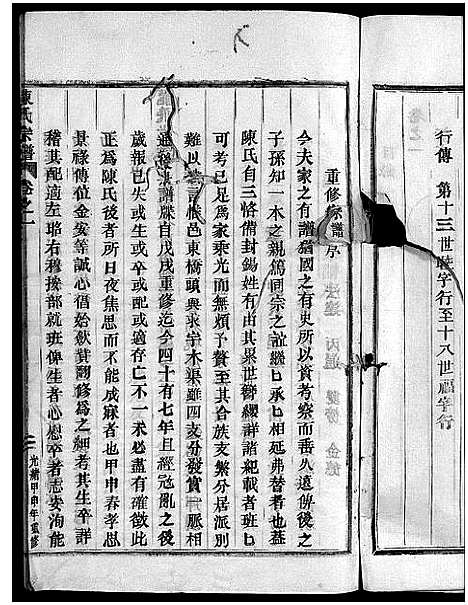 行傳 第十三世 字行至十八世福字行
重修宗譜序
今夫家之有譜猶國之有史所以資考察而垂久遠俾後之
子孫知一本之親篤同宗之誼繼匕承匕相延弗替者也蓋
陳氏自三恪備封錫姓有由其累世簪纓詳諸紀載者班匕
可考已足爲家乘光而無煩予贅至其合族支繁分居派別
難以 帳邑東橋頭與求宇木渠雖四支分發實一脈相
通 宗譜牒自戊戌重修迄今四十有七年且經寇亂之後
歲報已失或生或卒或配或適存亡不一未必盡有確徵此
正爲陳氏後者所日夜焦思而不能成寐者也甲申春孝思
景祿傳位金安等誠心倡始欣黃翻修爲之細考其生卒詳
稽其配適左昭右穆按部就班俾生者心慰卒者志安洵能
陳氏宗譜 卷之一
二 光緒甲申年重修